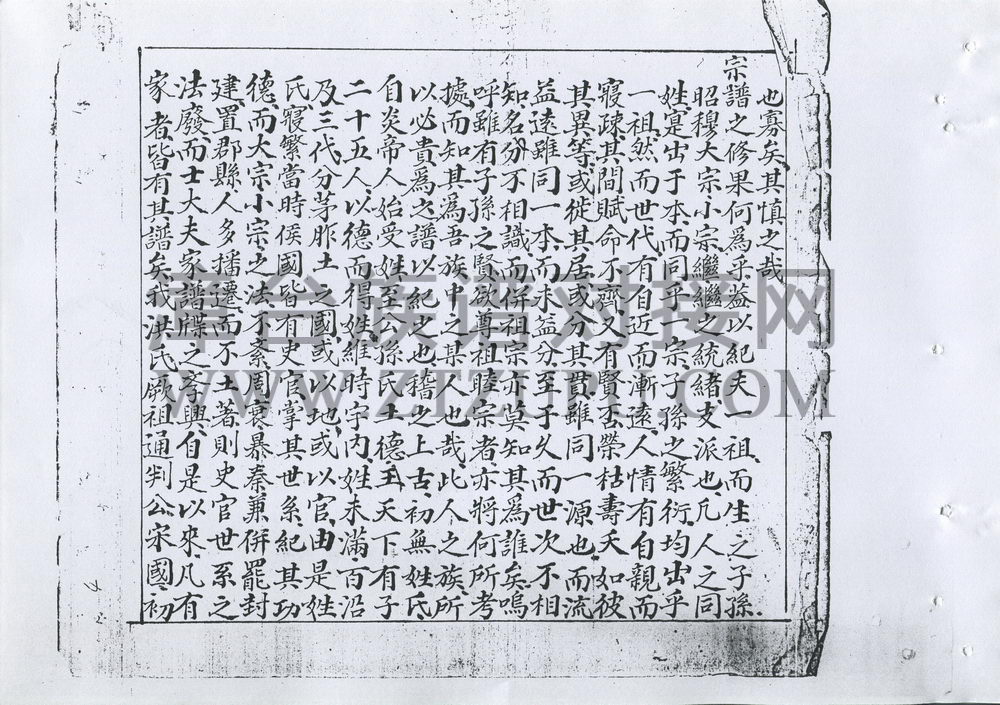 也寡矣其慎之哉
宗譜之修果何為乎益以紀夫一祖而生之子孫
昭穆大宗小宗繼繼之統緒支派也凡人之同
姓寔出于本而同乎一宗子孫之繁衍均出乎
一祖然而世代有自近而漸遠人情有自親而
寢疎其間賦命不齊又有賢否榮枯壽夭如彼
其異等或徙其居或分其貫雖同一源也而流
益遠雖同一本而末益分至于久而世次不相
知名分不相識而併祖宗亦莫知其為誰矣嗚
呼雖有子孫之賢欲尊祖睦宗者亦將何所考
據而知其為吾族中之某人也哉此人之族所
以必貴為之譜以紀之也稽之上古初無姓氏
自炎帝人始受姓至公孫氏土德王天下有子
二十五人以德而得姓維時宇内姓未滿百沿
及三代分茅胙土之國或以地或以官由是姓
氏寢繁當時侯國皆有史官掌其世系紀其功
德而大宗小宗之法不紊周衰暴秦兼併罷封
建置郡縣人多播遷而不土著則史官世系之
法廢而士大夫家譜牒之序興自是以來凡有
家者皆有其譜矣我洪氏厥祖通判公宋國初
库台族谱对接网
WWW.ZTZUPU.COM